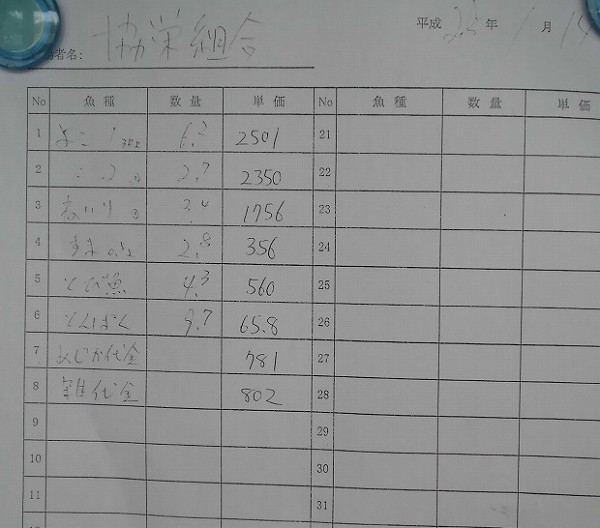 者名: 協栄組合
平成 23 年 1 月 14
No 魚種 数量 単価 No 魚種 数量 単価
1 6.2 2501 21
2 2.7 2350 22
3 3.4 1756 23
4 2.8 356 24
5 とび魚 4.3 560 25
6 とんぼく 9.7 65.8 26
7 めじか代金 781 27
8 雑代金 802 28
9 29
10 30
11 31